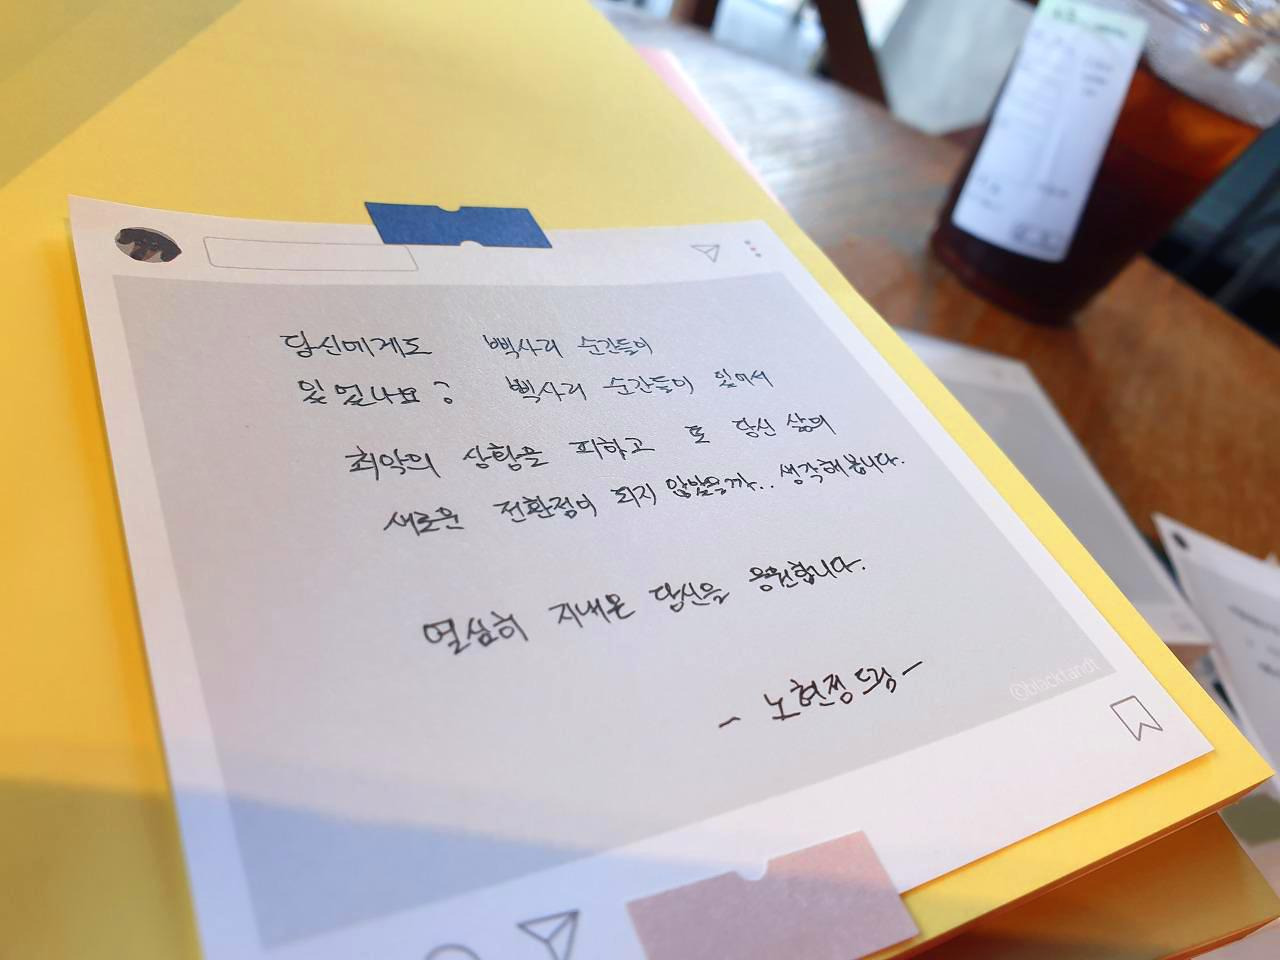 당신에게도 삑사리 순간들이
있었나요? 삑사리 순간들이 있어서
최악의 상황을 피하고 또 당신 삶의
새로운 전환점이 되지 않았을까.. 생각해 봅니다.
열심히 지내온 당신을 응원합니다.
- 노현정 드림 -
@blacktandt